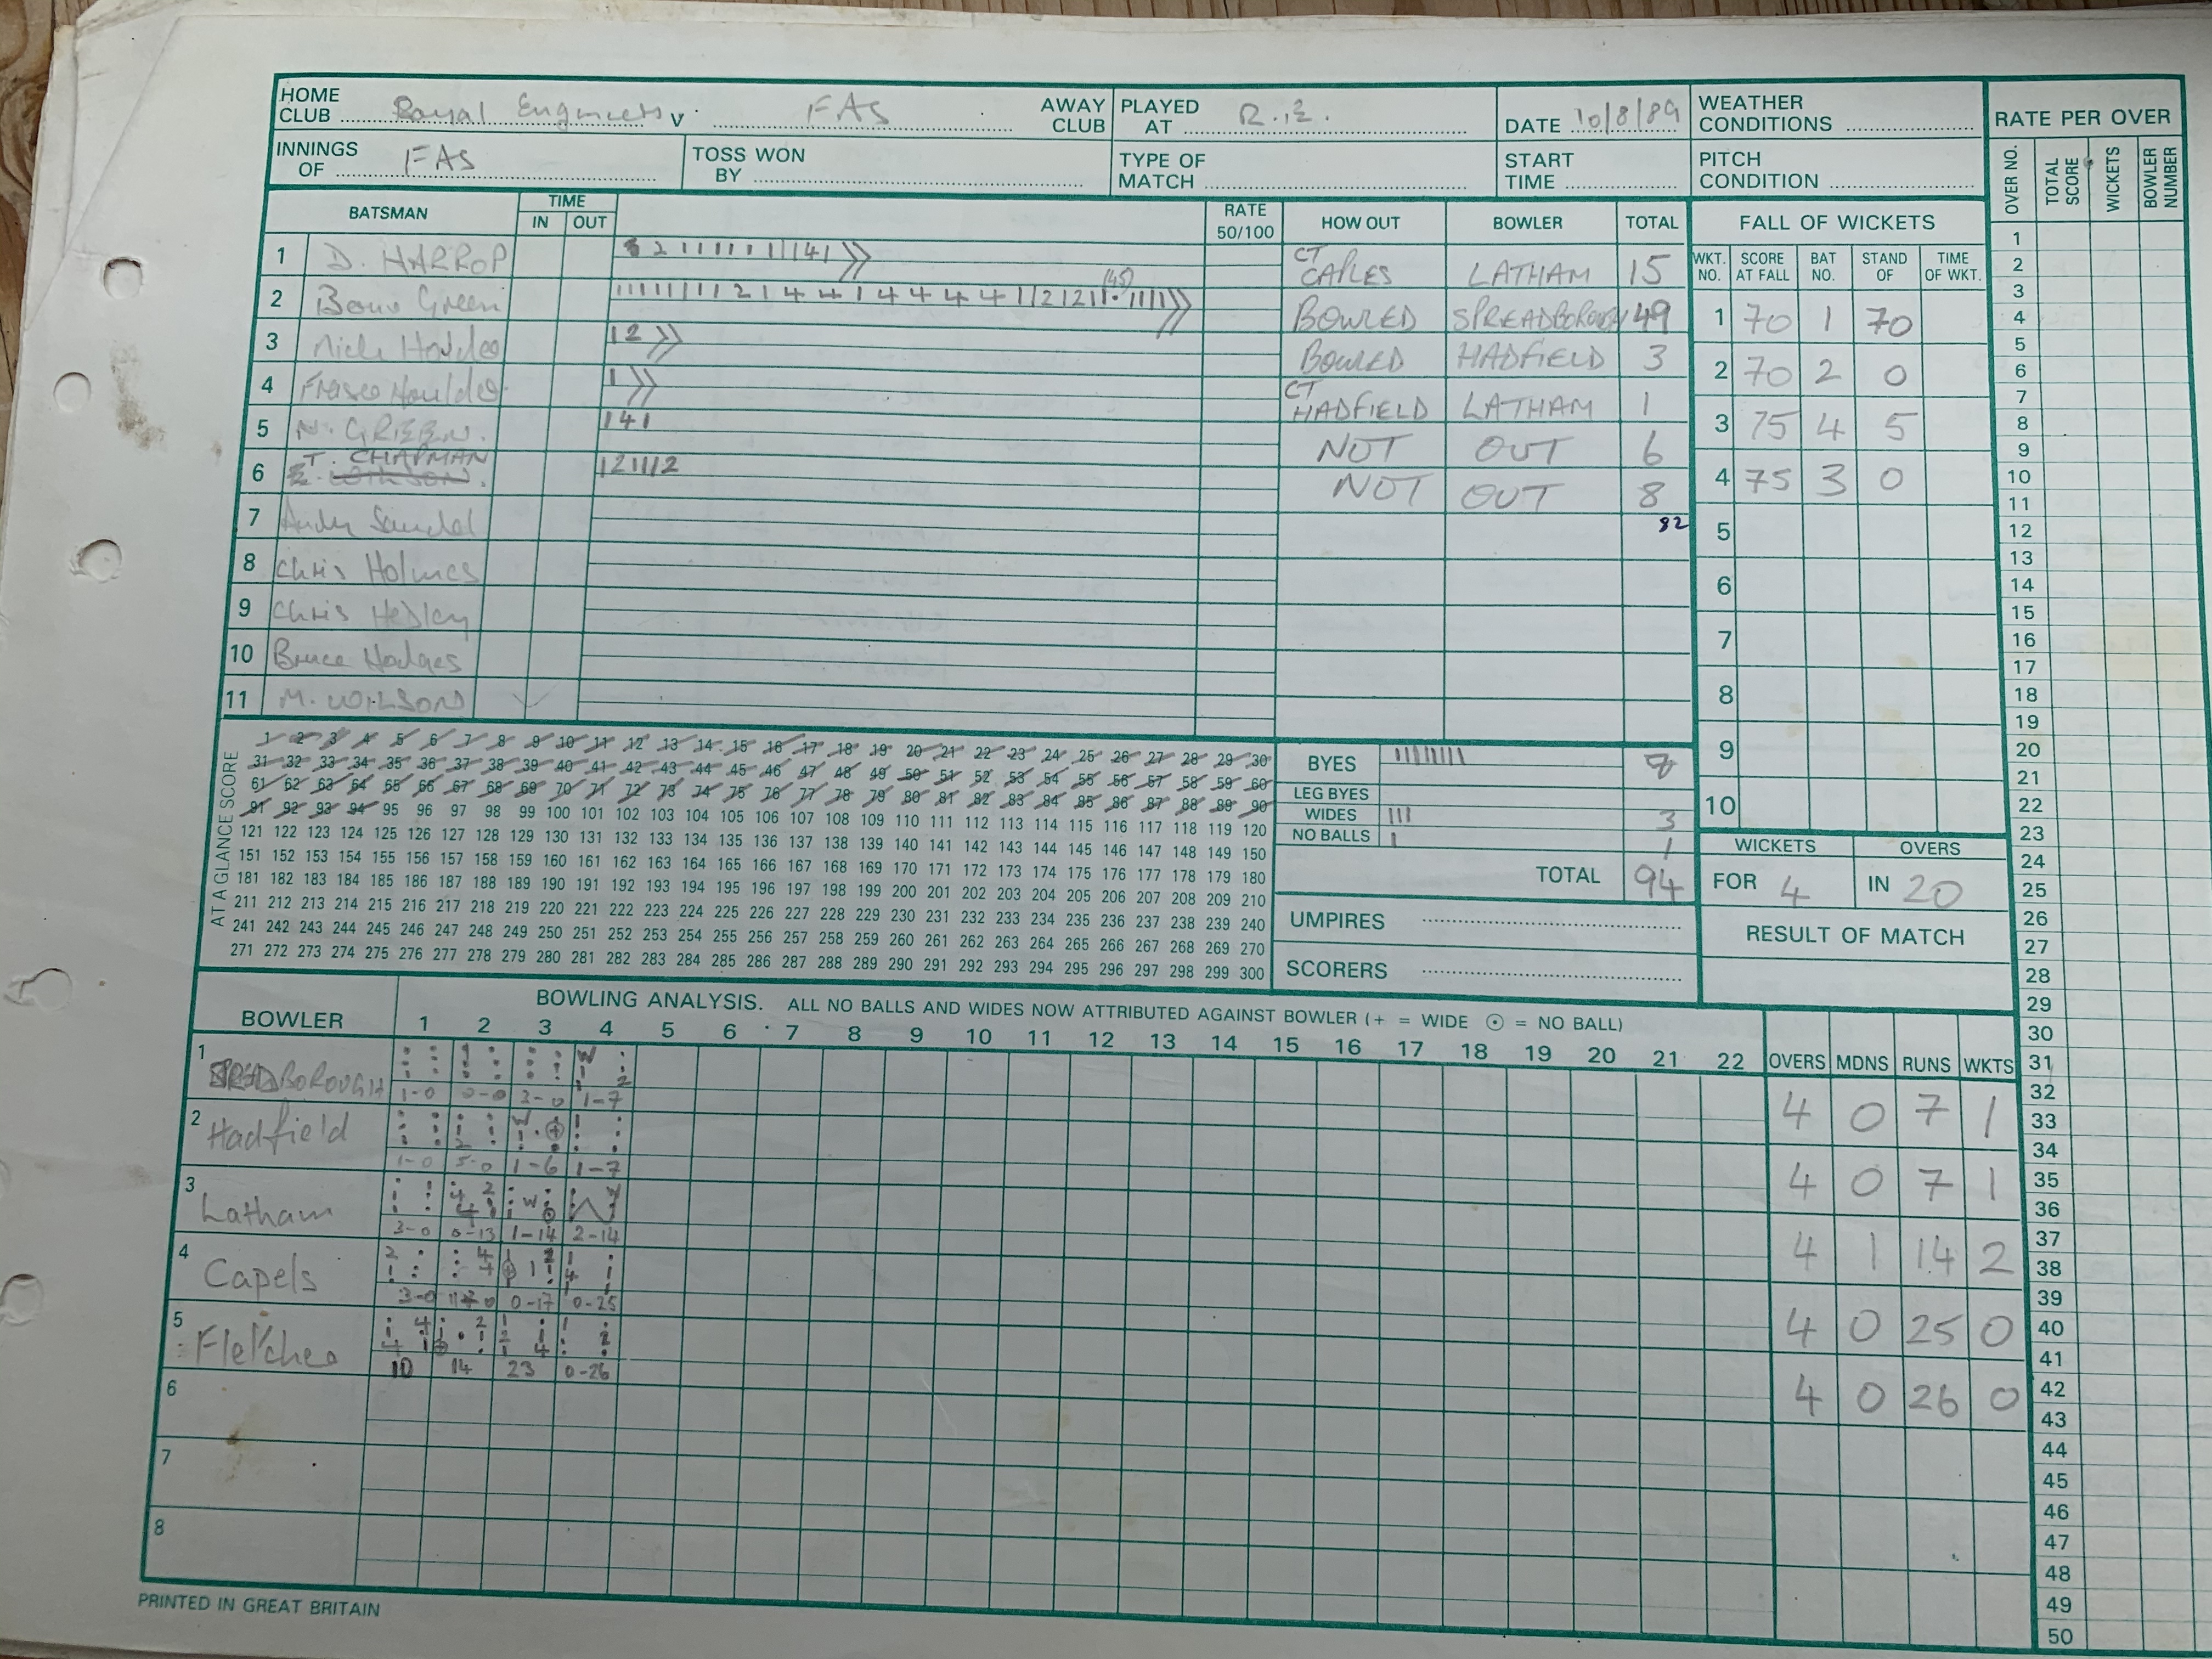 HOME CLUB Royal Engineers v FAS AWAY CLUB
PLAYED AT R.E.
DATE 10/8/89
WEATHER CONDITIONS
RATE PER OVER
INNINGS OF FAS
TOSS WON BY
TYPE OF MATCH
START TIME
PITCH CONDITION
OVER NO. TOTAL SCORE WICKETS BOWLER NUMBER
BATSMAN TIME IN OUT RATE 50/100 HOW OUT BOWLER TOTAL
1 D. HARROP CT CAPLES LATHAM 15
2 Green BOWLED SPREADBOROUGH 49
3 BOWLED HADFIELD 3
4 CT HADFIELD LATHAM 1
5 N. GREEN. 141 NOT OUT 6
6 T. CHAPMAN 121112 NOT OUT 8
82
7 Andy
8 Chris Holmes
9 Chris Hedley
10 Bruce Hodges
11 M. WILSON
FALL OF WICKETS
WKT. NO. SCORE AT FALL BAT NO. STAND OF TIME OF WKT.
1 70 1 70
2 70 2 0
3 75 4 5
4 75 3 0
5
6
7
8
9
10
AT A GLANCE SCORE
1 2 3 4 5 6 7 8 9 10 11 12 13 14 15 16 17 18 19 20 21 22 23 24 25 26 27 28 29 30
31 32 33 34 35 36 37 38 39 40 41 42 43 44 45 46 47 48 49 50 51 52 53 54 55 56 57 58 59 60
61 62 63 64 65 66 67 68 69 70 71 72 73 74 75 76 77 78 79 80 81 82 83 84 85 86 87 88 89 90
91 92 93 94 95 96 97 98 99 100 101 102 103 104 105 106 107 108 109 110 111 112 113 114 115 116 117 118 119 120
121 122 123 124 125 126 127 128 129 130 131 132 133 134 135 136 137 138 139 140 141 142 143 144 145 146 147 148 149 150
151 152 153 154 155 156 157 158 159 160 161 162 163 164 165 166 167 168 169 170 171 172 173 174 175 176 177 178 179 180
181 182 183 184 185 186 187 188 189 190 191 192 193 194 195 196 197 198 199 200 201 202 203 204 205 206 207 208 209 210
211 212 213 214 215 216 217 218 219 220 221 222 223 224 225 226 227 228 229 230 231 232 233 234 235 236 237 238 239 240
241 242 243 244 245 246 247 248 249 250 251 252 253 254 255 256 257 258 259 260 261 262 263 264 265 266 267 268 269 270
271 272 273 274 275 276 277 278 279 280 281 282 283 284 285 286 287 288 289 290 291 292 293 294 295 296 297 298 299 300
BYES
LEG BYES
WIDES 3
NO BALLS 1
TOTAL 94
UMPIRES
SCORERS
WICKETS OVERS
FOR 4 IN 20
RESULT OF MATCH
BOWLER
BOWLING ANALYSIS. ALL NO BALLS AND WIDES NOW ATTRIBUTED AGAINST BOWLER (+ = WIDE ⊙ = NO BALL)
1 2 3 4 5 6 7 8 9 10 11 12 13 14 15 16 17 18 19 20 21 22 OVERS MDNS RUNS WKTS
1 SPREADBOROUGH 4 0 7 1
1-0 0-0 3-0 1-7
2 Hadfield 4 0 7 1
1-0 5-0 1-6 1-7
3 Latham 4 1 14 2
3-0 0-13 1-14 2-14
4 Capels 4 0 25 0
3-0 0-17 0-25
5 Fletcher 4 0 26 0
10 14 23 0-26
6
7
8
1
2
3
4
5
6
7
8
9
10
11
12
13
14
15
16
17
18
19
20
21
22
23
24
25
26
27
28
29
30
31
32
33
34
35
36
37
38
39
40
41
42
43
44
45
46
47
48
49
50
PRINTED IN GREAT BRITAIN